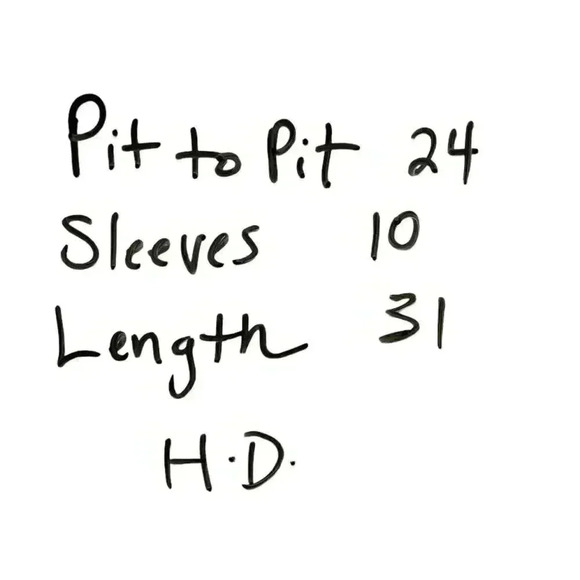 Pit to Pit 24
Sleeves 10
Length 31
H.D.